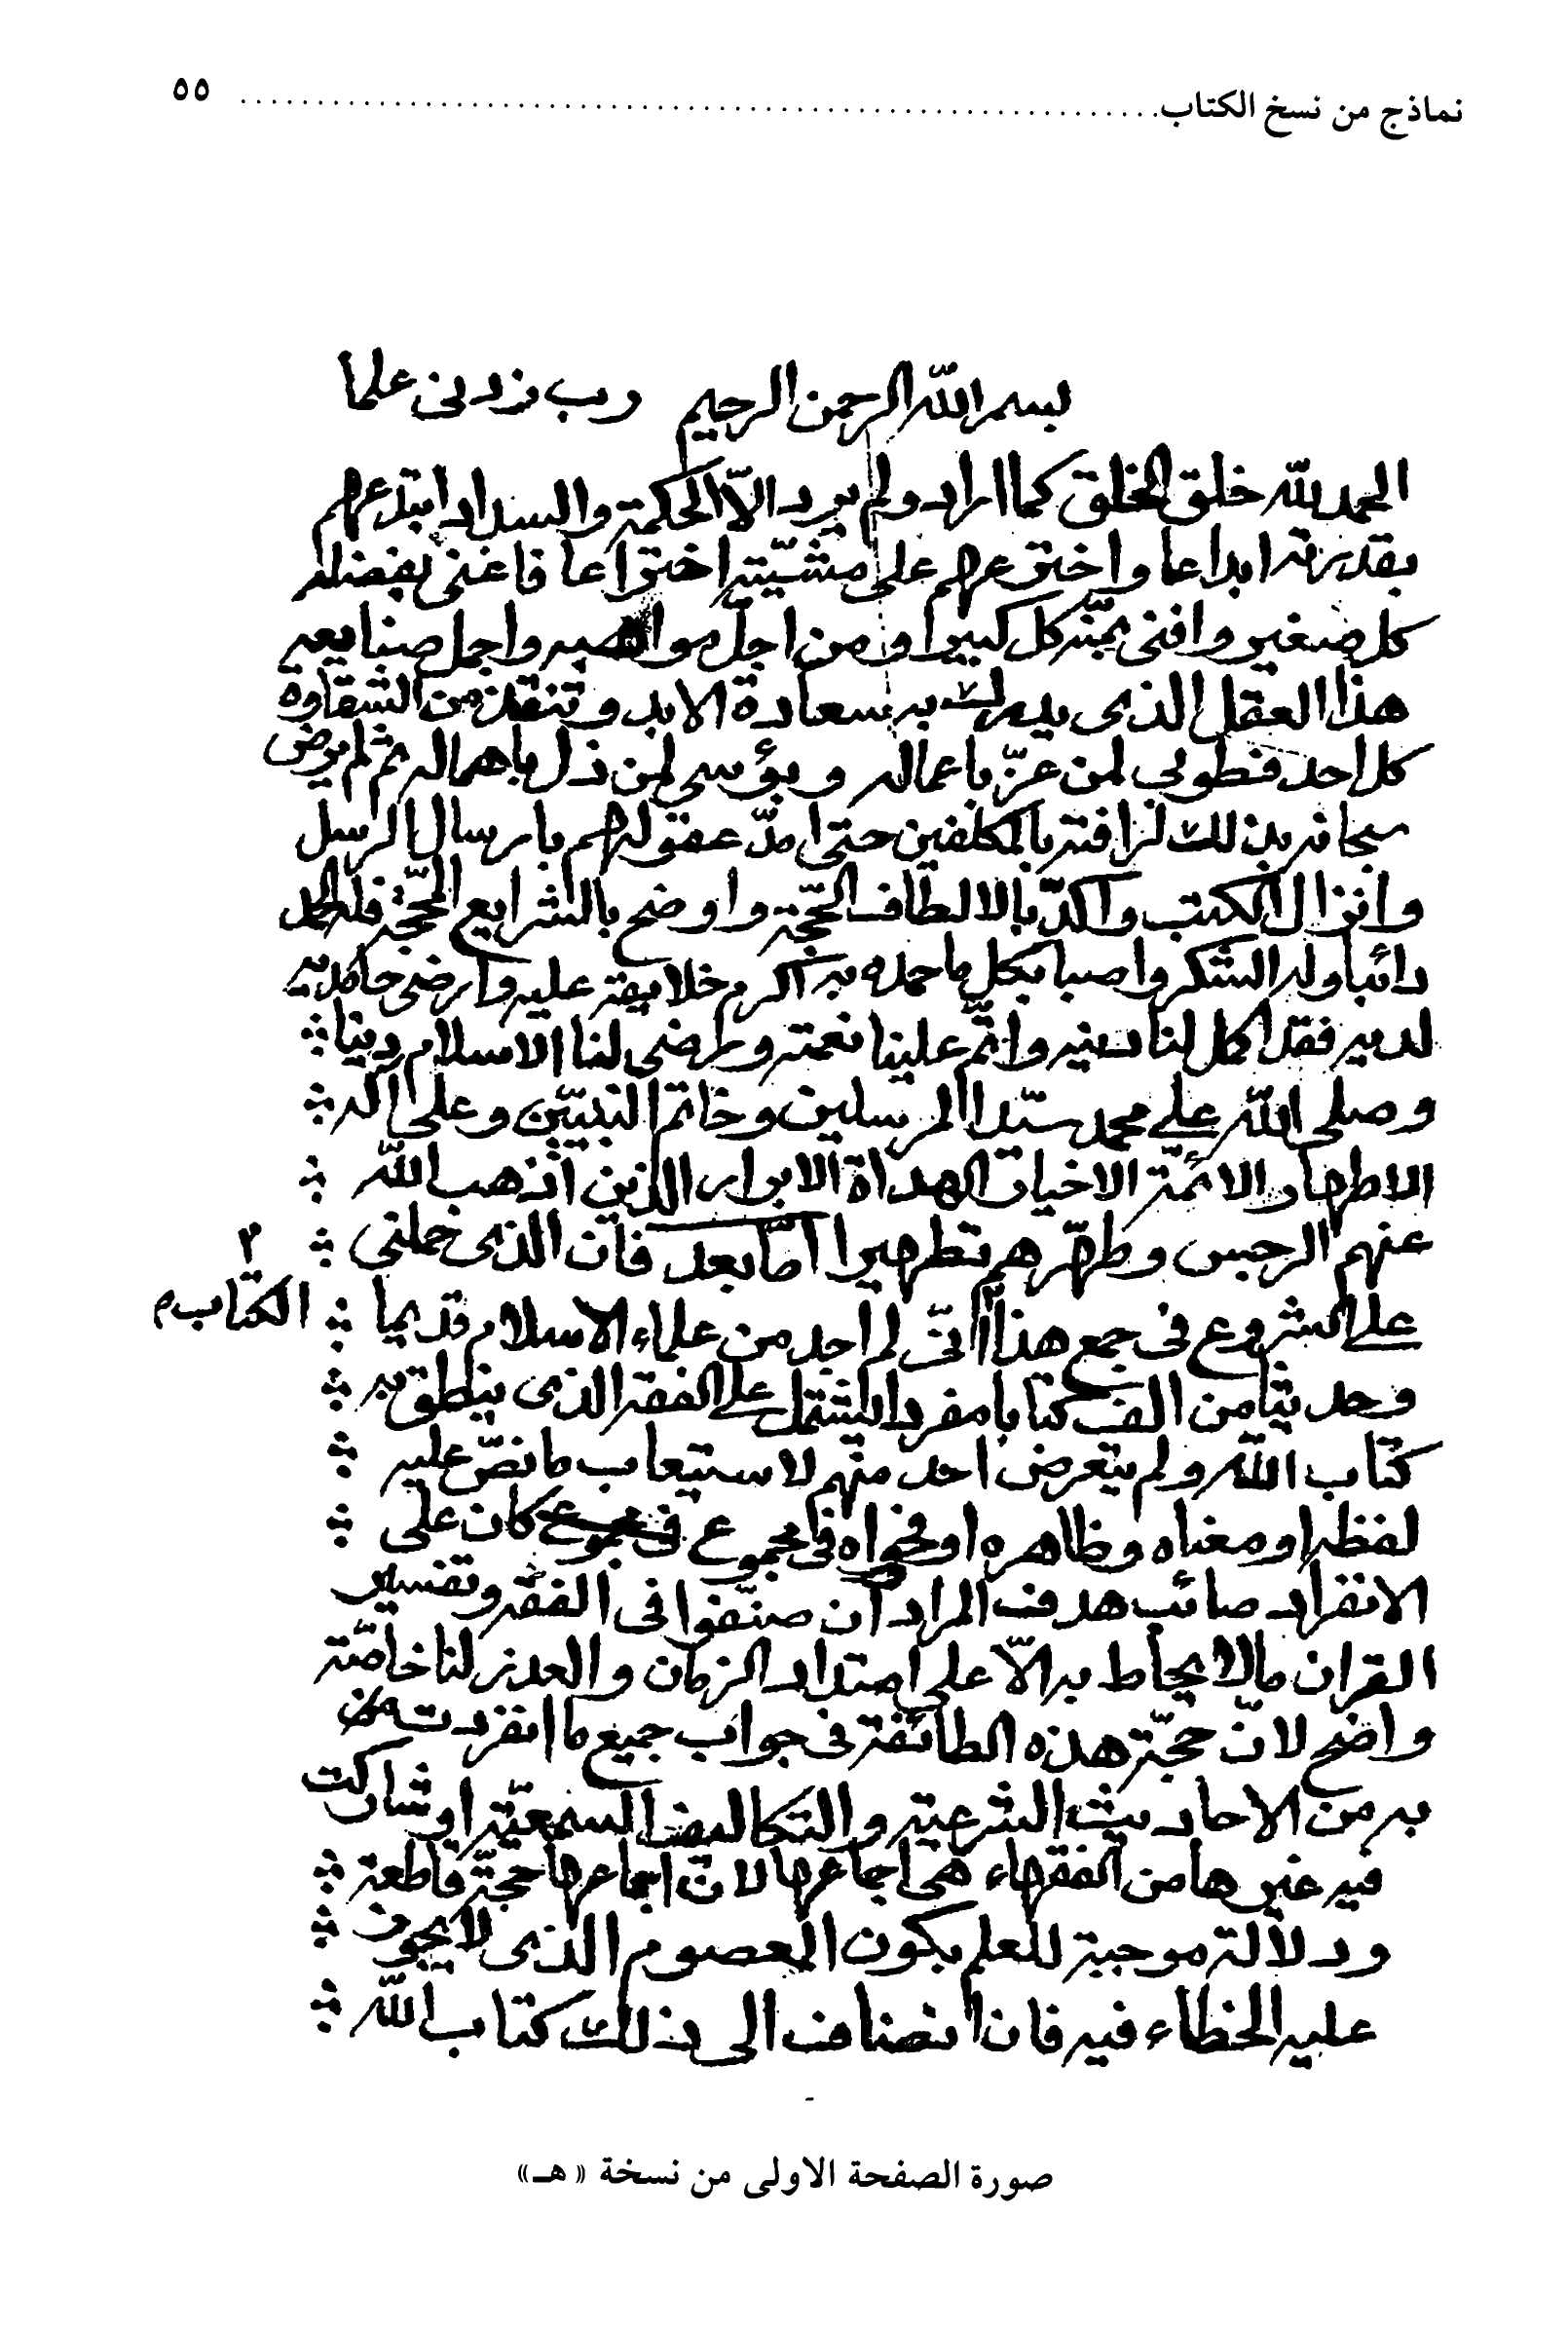 نماذج من نسخ الكتاب ............................................................ ٥٥
بسم الله الرحمن الرحيم رب زدنى علما
الحمد لله خلق الخلق كما اراد ولم يرد الّا الحكمة والسداد ابتدعهم
بقدرته ابداعا واخترعهم على مشيّته اختراعا فاغنى بفضله
كل صغير واقنى بمنّه كل كبير ومن اجلّ مواهبه واجمل صنايعه
هذا العقل الذى يدرك به سعادة الابد وتنقذ من الشقاوة
كل احد فطوبى لمن عزّ باعماله وبؤسى لمن ذل باهماله ثم لم يرض
سبحانه بذلك لرافته بالمكلفين حتى امدّ عقولهم بارسال الرسل
وانزال الكتب واكدّ بالالطاف الحجّة واوضح بالشرايع المحجّة فله الحمد
دائبا وله الشكر واصبا بكل ما حمده به اكرم خلايقه عليه وارضى حامديه
لديه فقد اكمل لنا دينه واتمّ علينا نعمته ورضى لنا الاسلام دينا
وصلى الله على محمد سيّد المرسلين وخاتم النبيّين وعلى اله
الاطهار الائمّة الاخيار الهداة الابرار الذين اذهب الله
عنهم الرجس وطهّرهم تطهيرا امّا بعد فان الذى حملنى
على الشروع فى جمع هذا ٣ انّى لم اجد من علماء الاسلام قديما
٣ الكتاب م
وحديثا من الف كتابا مفردا يشتمل على الفقه الذى ينطق به
كتاب الله ولم يتعرض احد منهم لاستيعاب ما نصّ عليه
لفظه او معناه وظاهره او فحواه فى مجموع فى مجموع كان على
الانفراد صائب هدف المراد ان صنّفوا فى الفقه وتفسير
القران ما لا يحاط به الّا على امتداد الزمان والعذر لنا خاصّة
واضح لانّ حجّة هذه الطائفة فى جواب جميع ما انفردت
به من الاحاديث الشرعية والتكاليف السمعيّة او شاركت
فيه غيرها من الفقهاء هى اجماعها لانّ اجماعها حجّة قاطعة
ودلالة موجبة للعلم بكون المعصوم الذى لا يجوز
عليه الخطاء فيه فان انضاف الى ذلك كتاب الله
صورة الصفحة الاولى من نسخة « هـ »